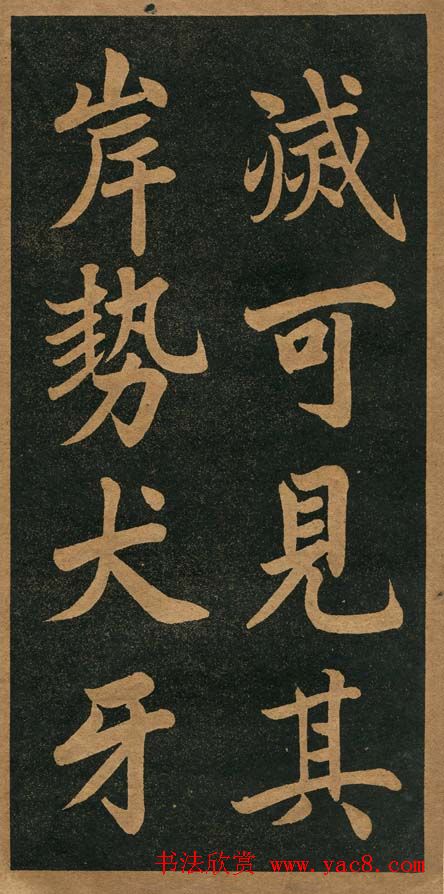 滅可見其
岸勢犬牙
书法欣赏 www.yac8.com